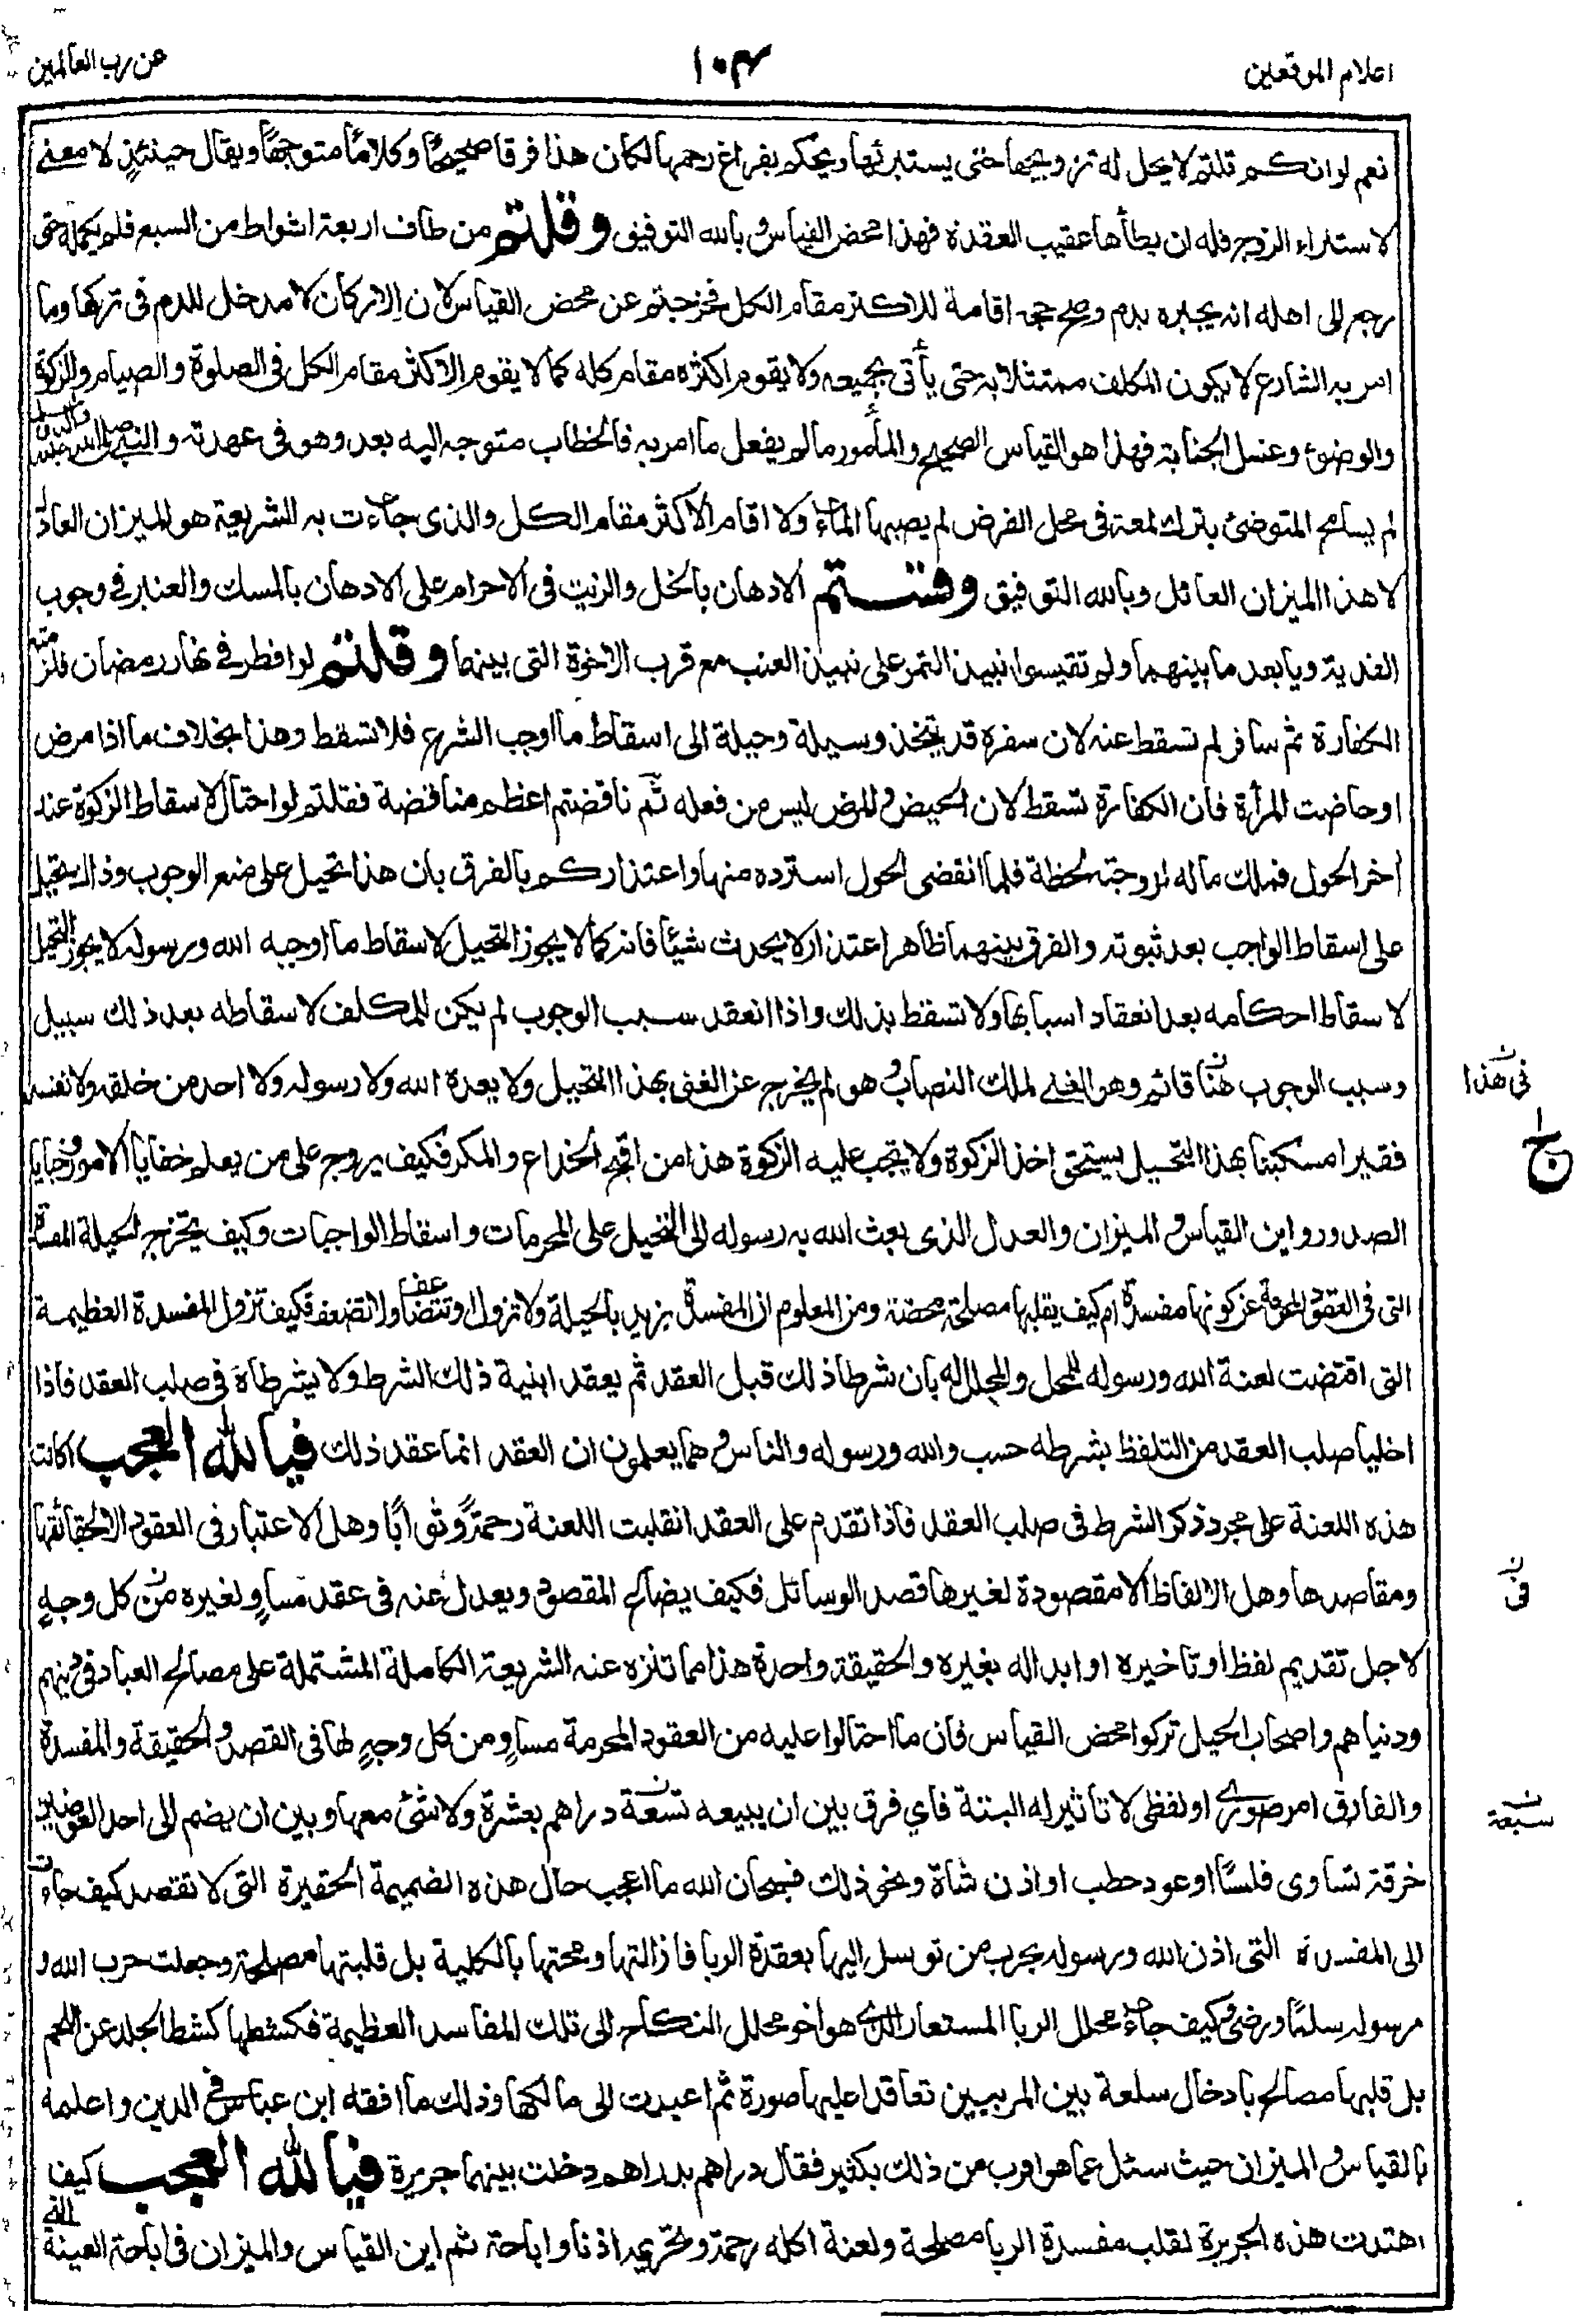 اعلام الموقعين
١٠٣
عن رب العالمين
نعم لو انكم قلتم لا يحل له تزويجها حتى يستبرئها ويحكم بفراغ رحمها لكان هذا فرقا صحيحًا وكلامًا متوجهًا ويقال حينئذٍ لا معنے
لاستبراء الزوج فله ان يطأها عقيب العقدة فهذا محض القياس وبالله التوفيق وقلتم من طاف اربعة اشواط من السبع فلم يكمله حتى
رجع الى اهله انه يجبره بدم وصح حجه اقامة للاكثر مقام الكل فخرجتم عن محض القياس لان الاركان لا مدخل للدم فى تركها وما
امر به الشارع لا يكون المكلف ممتثلا به حتى يأتى بجميعه ولا يقوم اكثره مقام كله كما لا يقوم الاكثر مقام الكل فى الصلوة والصيام والزكوة
والوضوء وغسل الجنابة فهذا هو القياس الصحيح والمأمور ما لم يفعل ما امر به فالخطاب متوجه اليه بعد وهو فى عهدته والنبى صلى الله عليه وآله وسلم
لم يسامح المتوضئ بترك لمعة فى محل الفرض لم يصبها الماء ولا اقام الاكثر مقام الكل والذى جاءت به الشريعة هو الميزان العادل
لا هذا الميزان العائل وبالله التوفيق وقستم الادهان بالخل والزيت فى الاحرام على الادهان بالمسك والعنبر فے وجوب
الفدية ويا بعد ما بينهما ولم تقيسوا نبيذ التمر على نبيذ العنب مع قرب الاخوة التى بينهما وقلتم لو افطر فے نهار رمضان فلزمته
الكفارة ثم سافر لم تسقط عنه لان سفره قد يتخذ وسيلة وحيلة الى اسقاط ما اوجب الشرع فلا تسقط وهذا بخلاف ما اذا مرض
او حاضت المرأة فان الكفارة تسقط لان الحيض والمرض ليس من فعله ثم ناقضتم اعظم مناقضة فقلتم لو احتال لاسقاط الزكوة عند
اخر الحول فملك ماله لزوجته لحظة فلما انقضى الحول استرده منها واعتذاركم بالفرق بان هذا تحيل على منع الوجوب وذاك تحيل
على اسقاط الواجب بعد ثبوته والفرق بينهما ظاهر اعتذار لا يجدث شيئا فانه كما لا يجوز التحيل لاسقاط ما اوجبه الله ورسوله لا يجوز التحيل
لاسقاط احكامه بعد انعقاد اسبابها ولا تسقط بذلك واذا انعقد سبب الوجوب لم يكن للمكلف لاسقاطه بعد ذلك سبيل
وسبب الوجوب هنا قائم وهو الغنے لملك النصاب وهو لم يخرج عن الغنى بهذا التحيل ولا يعده الله ولا رسوله ولا احد من خلقه ولا نفسه
فى هذا
فقيرا مسكينا بهذا التحيل يستحق اخذ الزكوة ولا يتجب عليه الزكوة هذا من اقبح الخداع والمكر فكيف يروج على من يعلم خفايا الامور وخبايا
ج
الصدور واين القياس والميزان والعدل الذى بعث الله به رسوله الى التحيل على المحرمات واسقاط الواجبات وكيف يخرج الحيلة المفسدة
التى فى العقود المحرمة عن كونها مفسدة ام كيف يقلبها مصلحة محضة ومن المعلوم ان المفسدة يزيد بالحيلة ولا تزول او تتضاعف ولا تضعف فكيف تزول المفسدة العظيمة
التى اقتضت لعنة الله ورسوله للمحل والمحلل له بان شرطا ذلك قبل العقد ثم يعقد ابنية ذلك الشرط ولا يشرطاه فى صلب العقد فاذا
اخليا صلب العقد من التلفظ بشرطه حسب والله ورسوله والناس وهما يعلمون ان العقد انما عقد ذلك فيا لله العجب اكانت
هذه اللعنة على مجرد ذكر الشرط فى صلب العقد فاذا تقدم على العقد انقلبت اللعنة رحمةً وثوابًا وهل الاعتبار فى العقود الا بحقائقها
ومقاصدها وهل الالفاظ الا مقصودة لغيرها قصد الوسائل فكيف يضاع المقصود ويعدل عنه فى عقد مساوٍ لغيره من كل وجهٍ
فى
لاجل تقديم لفظ او تاخيره او ابداله بغيره والحقيقة واحدة هذا مما تنزه عنه الشريعة الكاملة المشتملة على مصالح العباد فى دينهم
ودنياهم واصحاب الحيل تركوا محض القياس فان ما احتالوا عليه من العقود المحرمة مساوٍ من كل وجهٍ لها فى القصد والحقيقة والمفسدة
والفارق امر صورے او لفظى لا تاثير له البتة فاى فرق بين ان يبيعه تسعة دراهم بعشرة ولا شئ معها وبين ان يضم الى احد العوضين
سبعة
خرقة تساوى فلسًا او عود حطب او اذن شاة ونحو ذلك فسبحان الله ما اعجب حال هذه الضميمة الحقيرة التى لا تقصد كيف جاءت
الى المفسدة التى اذن الله ورسوله بحرب من توسل اليها بعقدة الربا فازالتها ومحتها بالكلية بل قلبتها مصلحة وجعلت حرب الله و
رسوله سلمًا ورضى وكيف جاء محلل الربا المستعار الذى هو اخو محلل النكاح الى تلك المفاسد العظيمة فكشطها كشط الجلد عن اللحم
بل قلبها مصالح بادخال سلعة بين المربيين تعاقدا عليها صورة ثم اعيدت الى مالكها وذلك ما افقه ابن عباس فى الدين واعلمه
بالقياس والميزان حيث سئل عما هو اقرب من ذلك بكثير فقال دراهم بدراهم دخلت بينهما جريرة فيا لله العجب كيف
اهتدت هذه الجريرة لقلب مفسدة الربا مصلحة ولعنة اكله رحمة وتحريمه اذنا واباحة ثم اين القياس والميزان فى اباحة العينة التى